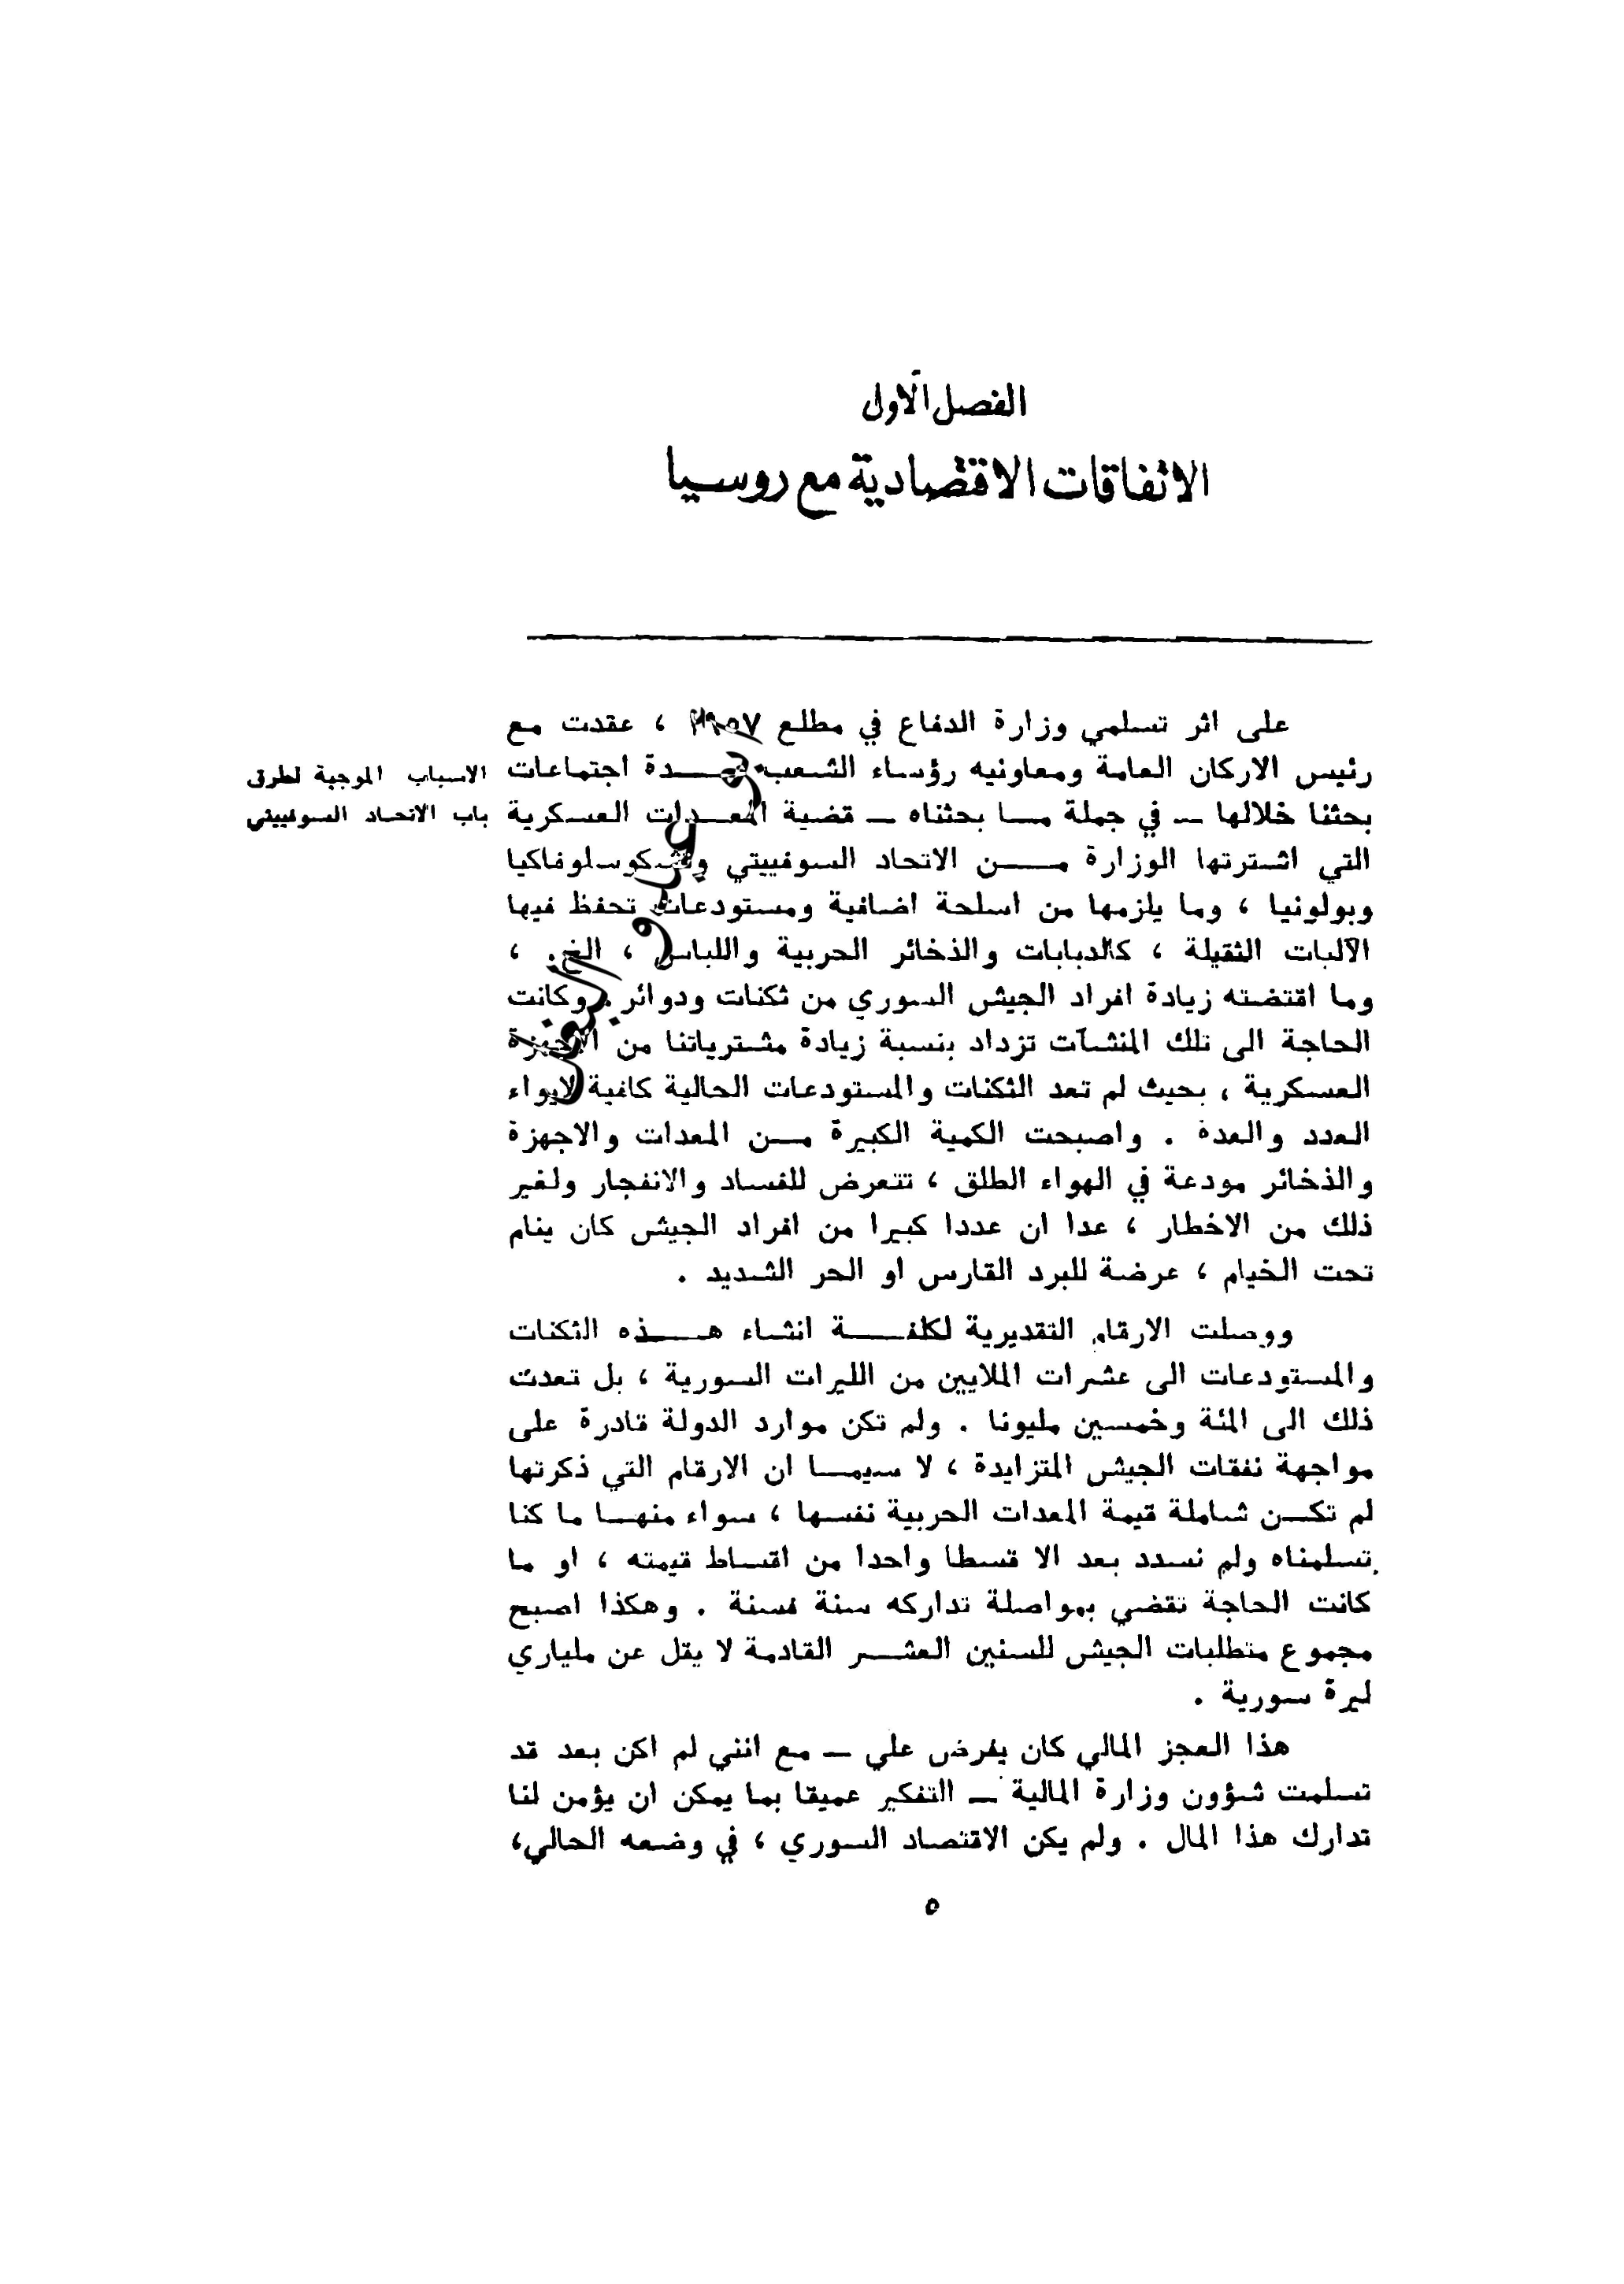 الفصل الاول
الاتفاقات الاقتصادية مع روسيا
على اثر تسلمي وزارة الدفاع في مطلع ١٩٥٧ ، عقدت مع
رئيس الاركان العامة ومعاونيه رؤساء الشعب عدة اجتماعات
بحثنا خلالها — في جملة ما بحثناه — قضية المعدات العسكرية
التي اشترتها الوزارة من الاتحاد السوفييتي وتشكوسلوفاكيا
وبولونيا ، وما يلزمها من اسلحة اضافية ومستودعات تحفظ فيها
الآليات الثقيلة ، كالدبابات والذخائر الحربية واللباس ، الخ. ،
وما اقتضته زيادة افراد الجيش السوري من ثكنات ودوائر . وكانت
الحاجة الى تلك المنشآت تزداد بنسبة زيادة مشترياتنا من الاجهزة
العسكرية ، بحيث لم تعد الثكنات والمستودعات الحالية كافية لايواء
العدد والعدة . واصبحت الكمية الكبيرة من المعدات والاجهزة
والذخائر مودعة في الهواء الطلق ، تتعرض للفساد والانفجار ولغير
ذلك من الاخطار ، عدا ان عددا كبيرا من افراد الجيش كان ينام
تحت الخيام ، عرضة للبرد القارس او الحر الشديد .
ووصلت الارقام التقديرية لكلفة انشاء هذه الثكنات
والمستودعات الى عشرات الملايين من الليرات السورية ، بل تعدت
ذلك الى المئة وخمسين مليونا . ولم تكن موارد الدولة قادرة على
مواجهة نفقات الجيش المتزايدة ، لا سيما ان الارقام التي ذكرتها
لم تكن شاملة قيمة المعدات الحربية نفسها ، سواء منها ما كنا
تسلمناه ولم نسدد بعد الا قسطا واحدا من اقساط قيمته ، او ما
كانت الحاجة تقضي بمواصلة تداركه سنة فسنة . وهكذا اصبح
مجموع متطلبات الجيش للسنين العشر القادمة لا يقل عن ملياري
ليرة سورية .
هذا العجز المالي كان يفرض علي — مع انني لم اكن بعد قد
تسلمت شؤون وزارة المالية — التفكير عميقا بما يمكن ان يؤمن لنا
تدارك هذا المال . ولم يكن الاقتصاد السوري ، في وضعه الحالي،
الاسباب الموجبة لطرق
باب الاتحاد السوفييتي
٥